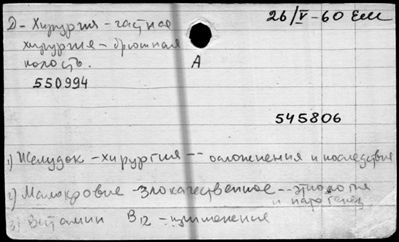 Д - Хирургия - частная
26/V-60 Еш
хирургия - брюшная
полость.
А
550994
545806
1) Желудок - хирургия -- осложнения и последствия
2) Малокровие - злокачественное -- этиология
и патогенез
3) Витамин B12 - применение